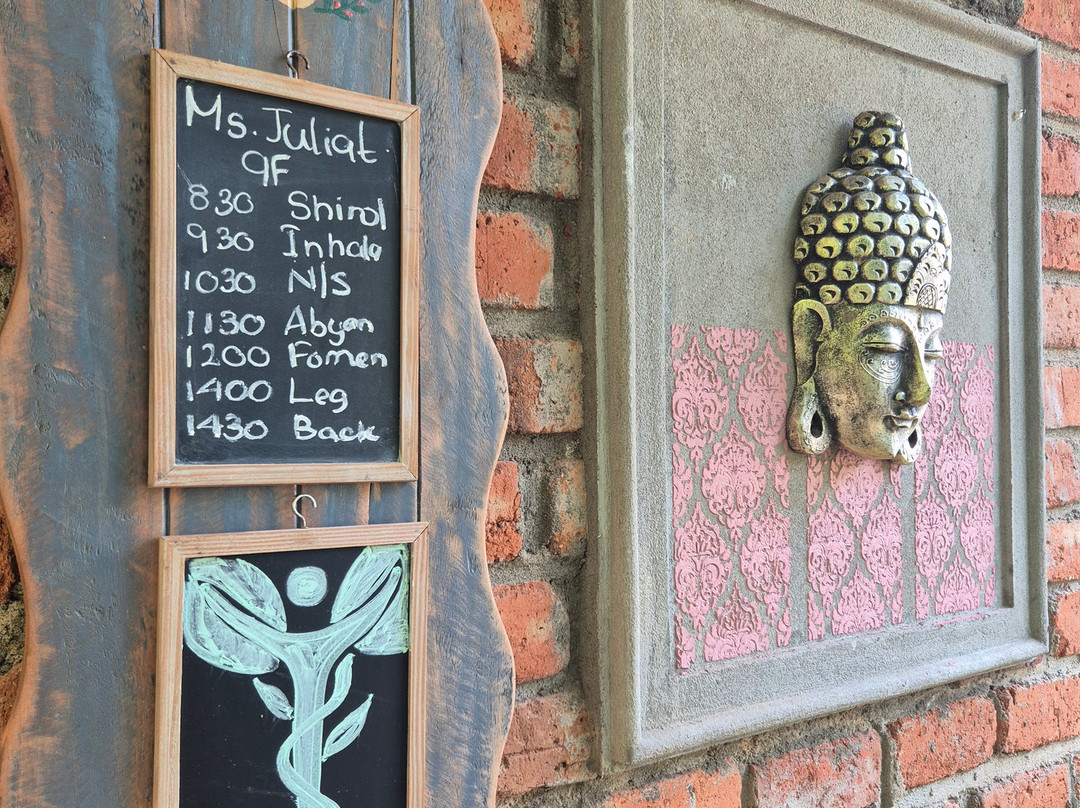 Ms. Juliat.
9F
830 Shirol
930 Inhala
1030 N/s
1130 Abyan
1200 Fomen
1400 Leg
1430 Back